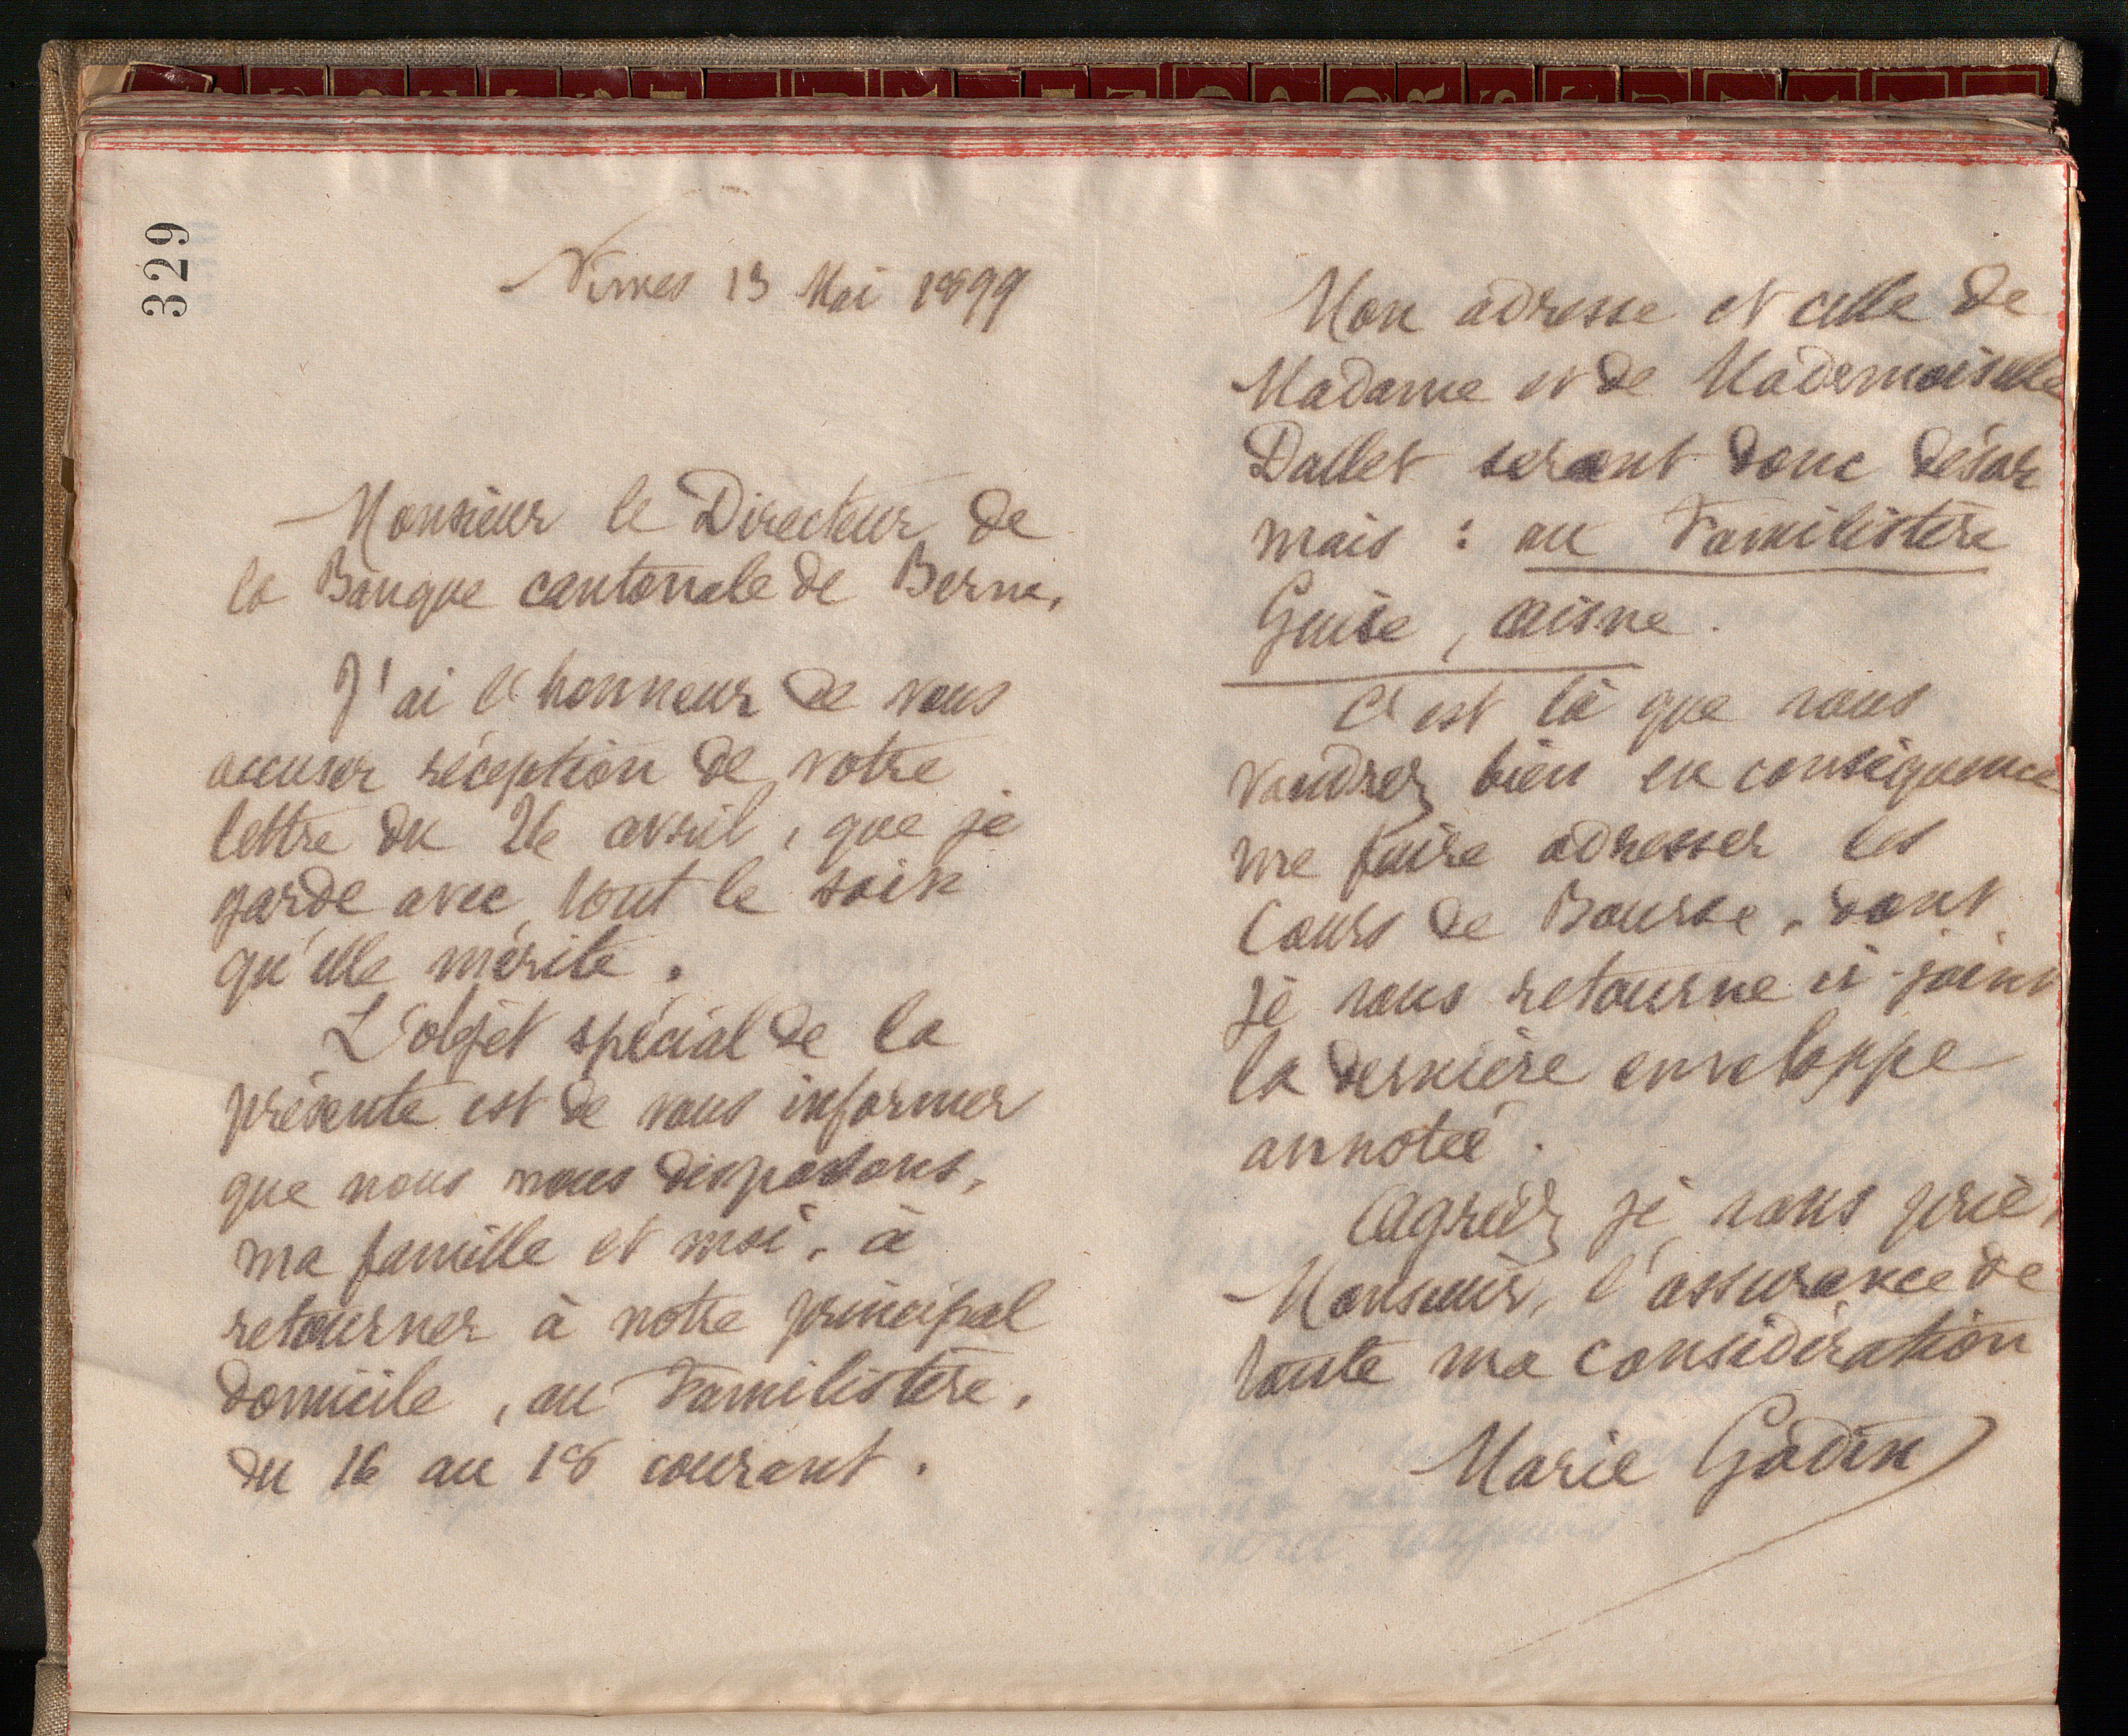 329
Nimes 13 Mai 1899
Monsieur le Directeur de
la Banque cantonale de Berne,
J'ai l'honneur de vous
accuser réception de votre
lettre du 26 avril, que je
garde avec tout le soin
qu'elle mérite.
L'objet spécial de la
présente est de vous informer
que nous nous disposons,
ma famille et moi, à
retourner à notre principal
domicile, au Familistère,
du 16 au 18 courant.
Mon adresse et celle de
Madame et de Mademoiselle
Dallet seront donc désor
mais : au Familistère
Guise, Aisne.
C'est là que vous
voudrez bien en conséquence
me faire adresser les
Cours de Bourse, dont
je vous retourne ci-joint
la dernière enveloppe
annotée.
Agréez, je vous prie,
Monsieur, l'assurance de
toute ma considération
Marie Godin